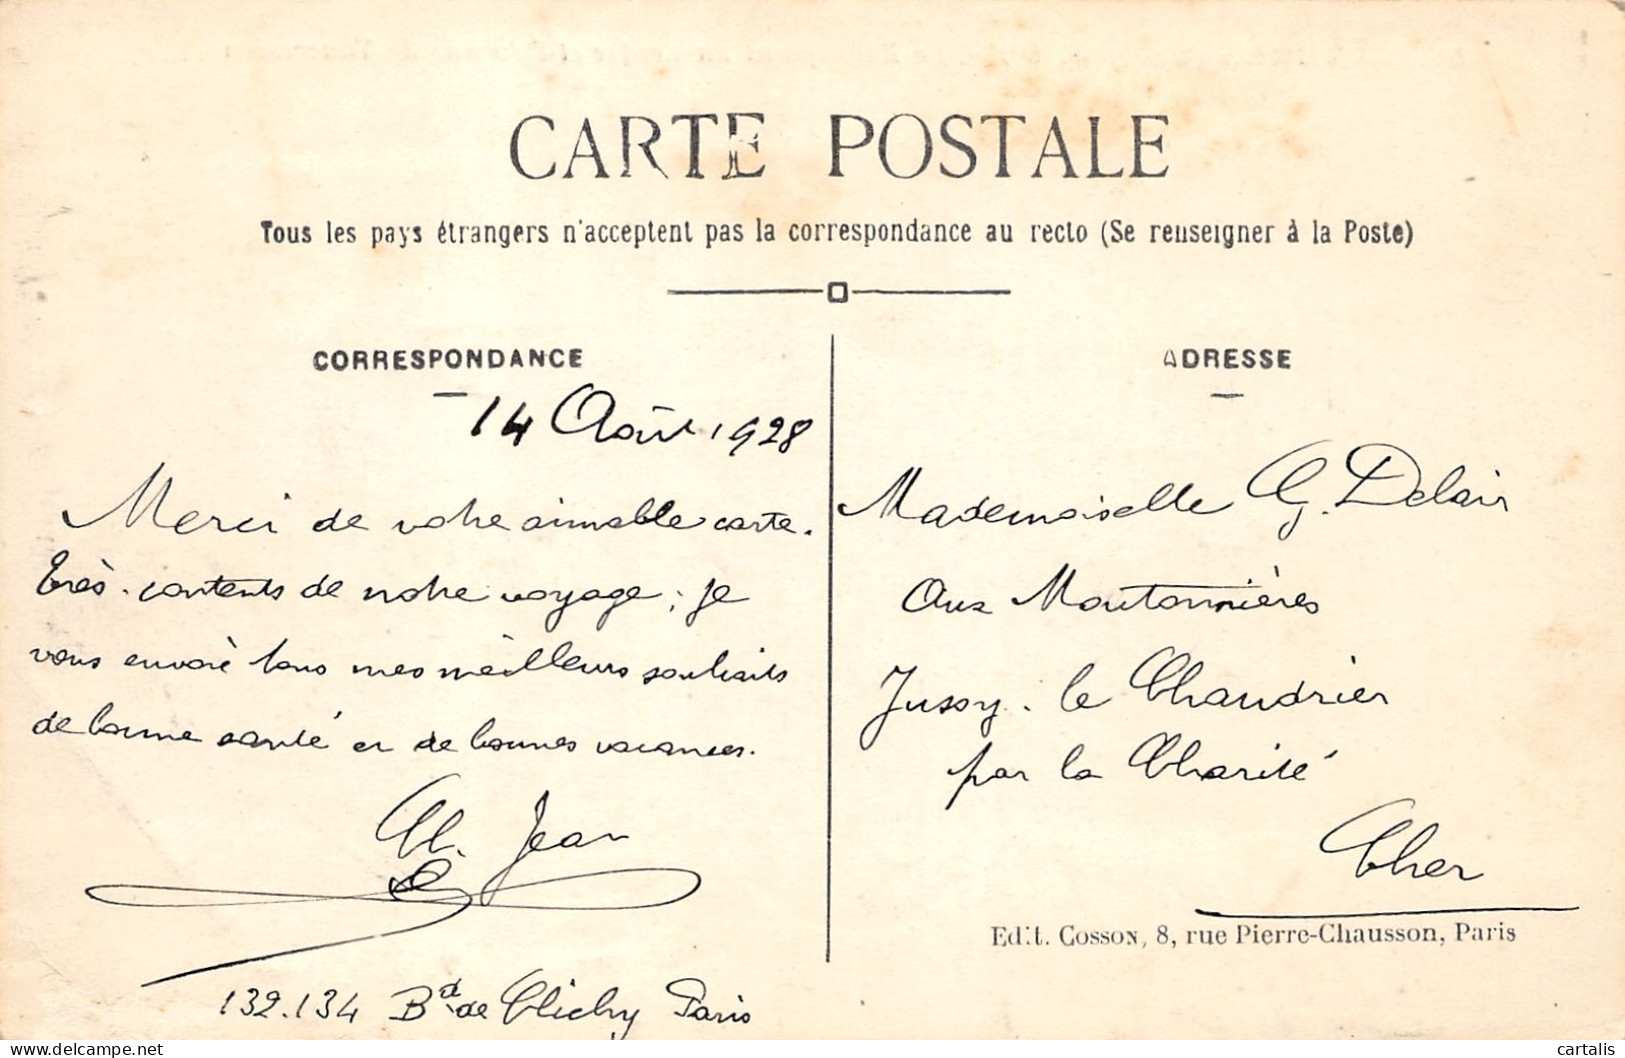 CARTE POSTALE
Tous les pays étrangers n'acceptent pas la correspondance au recto (Se renseigner à la Poste)
CORRESPONDANCE
14 Août 1928
Merci de votre aimable carte.
Très contents de notre voyage ; je
vous envoie tous mes meilleurs souhaits
de bonne santé et de bonnes vacances.
Jean
132.134 Bd de Clichy Paris
ADRESSE
Mademoiselle G. Delair
Aux Moutonnières
Jussy. le Chaudrier
par la Charité
Cher
Edit. Cosson, 8, rue Pierre-Chausson, Paris
cartalis